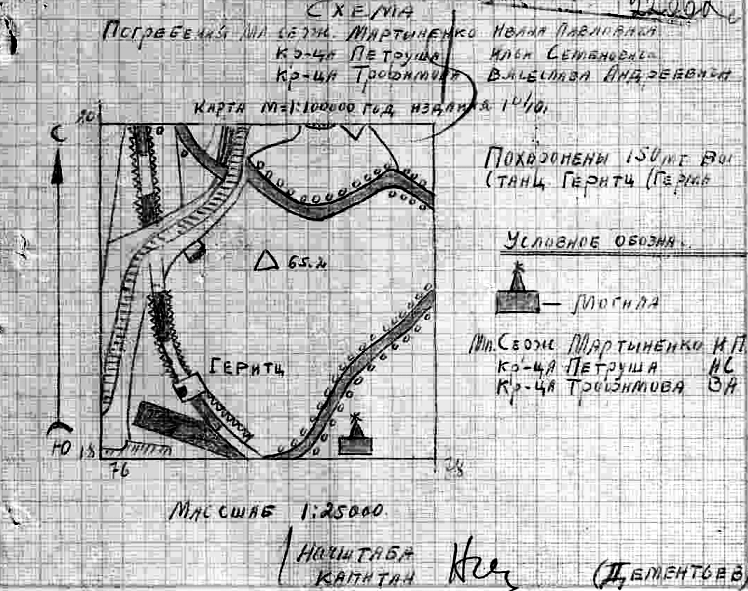 Схема
Погребений мл. серж. Мартыненко Ивана Павловича
кр-ца Петруша Ильи Семеновича
кр-ца Трофимова Вячеслава Андреевича
карта м=1:100000 год издания
Похоронены 150 мт
станц. Геритц (Герма
20
С
65.2
Условное обозна.
— Могила
Мл. Серж Мартыненко И П
кр-ца Петруша И С
кр-ца Трофимова В А
Геритц
Ю 18
76 78
Массшаб 1:25000
Начштаба
капитан (Дементьев)